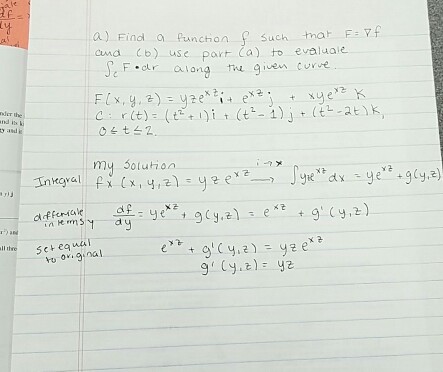 a) Find a function f such that F = ∇f
and (b) use part (a) to evaluate
∫c F • dr along the given curve
F(x, y, z) = yze^xz i + e^xz j + xye^xz K
C: r(t) = (t² + 1)i + (t² - 1)j + (t² - 2t)K,
0 ≤ t ≤ 2.
my solution
Integral fx (x, y, z) = yze^xz → i→x ∫yze^xz dx = ye^xz + g(y,z)
differentiate in terms y df/dy = ye^xz + g(y,z) = e^xz + g'(y,z)
set equal to original e^xz + g'(y,z) = yze^xz
g'(y,z) = yz